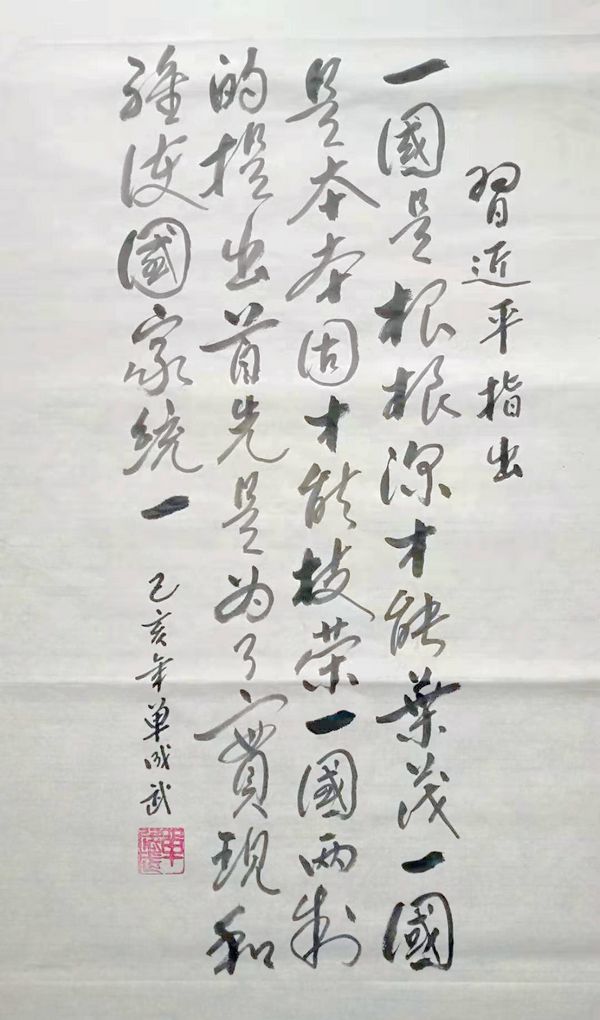 習近平指出
一國是根根深才能葉茂一國
是本本固才能枝荣一國两制
的提出首先是为了實現和
維護國家統一
己亥年单成武